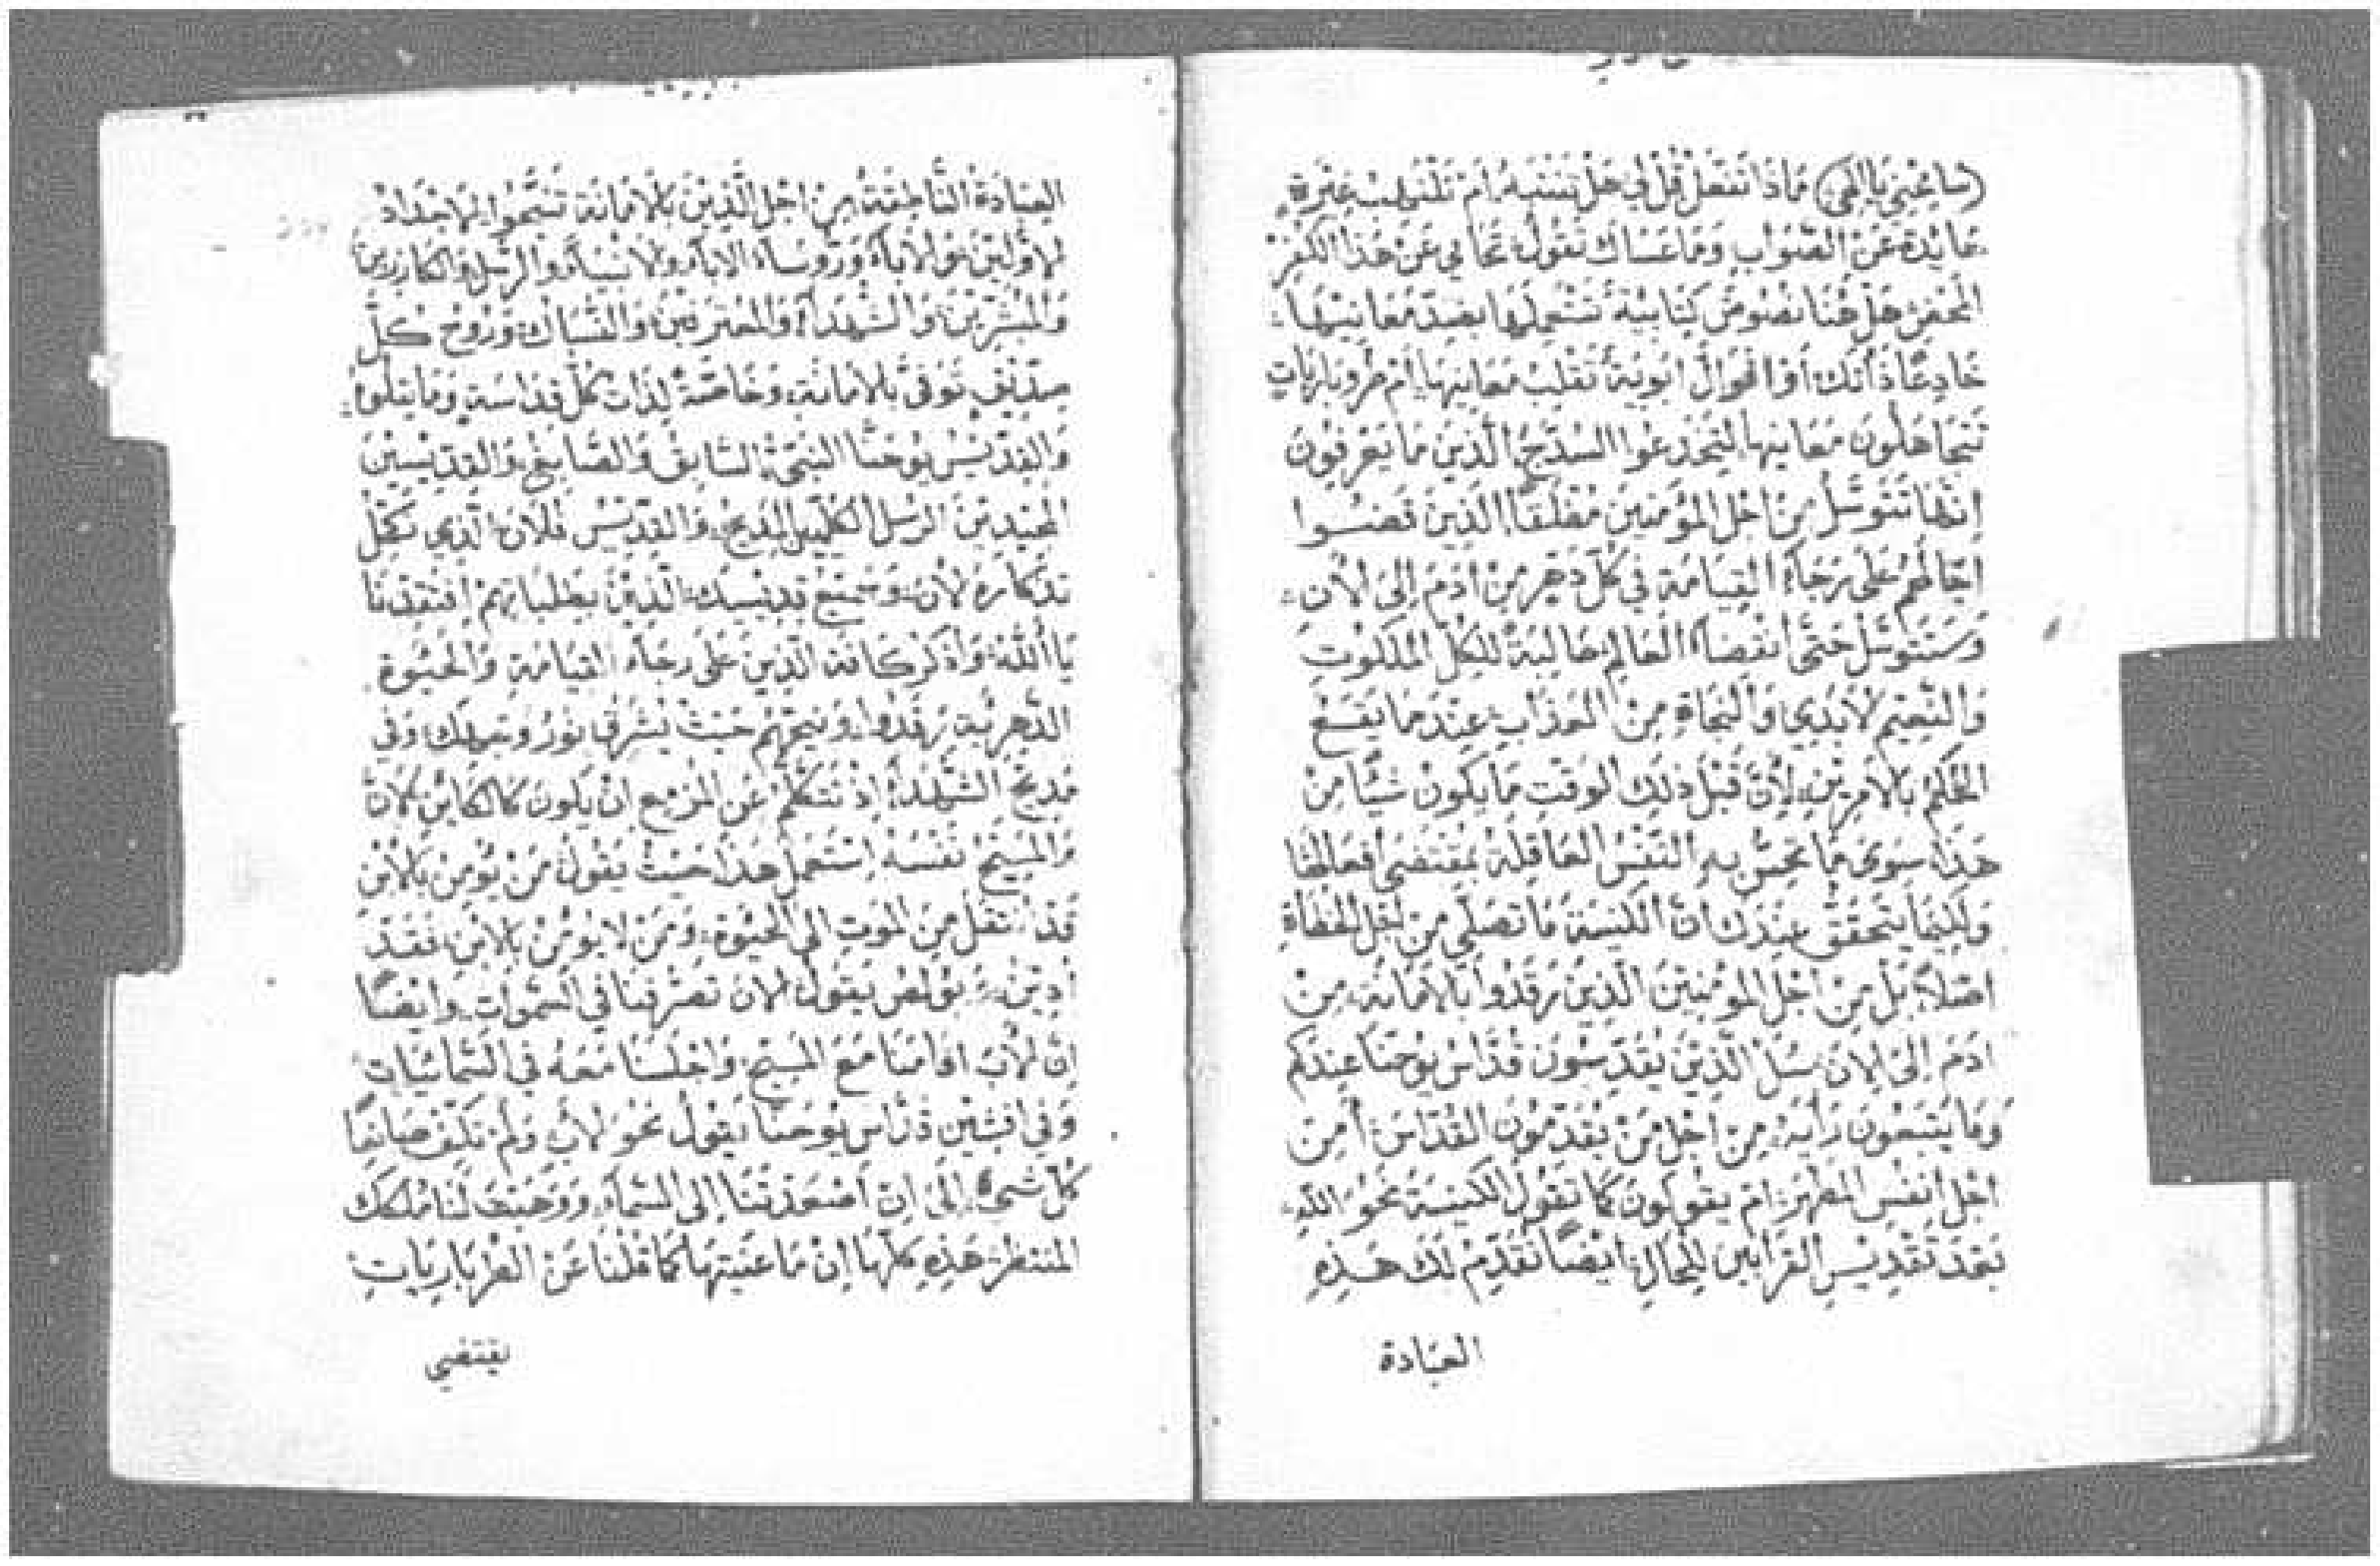 (سامحني يا الهي) مَاذَا تَفعَل قُل لي هَل تنتبهُ أم تلتهب غيرة
حَايدة عَن الصَّواب وَمَا عَسَاك تَقُول تحَامي عَن هَذا الكفر
المحض هَل هُنَا نصُوصٌ كتابيَّة تستعملها بضدّ معَانيهَا
خَادِعًا ذَاتك أو اقوَالٌ ابَويَة تَقلب معَانيهَا أم طروباريات
تَتجاهَلُون مَعَانيها لتخدعوا السذّج الذينَ مَا يَعرفونَ
انهَا تَتَوسَّل مِن اجل المؤمنين مُطلقًا الذينَ قَضَوا
اجَالهُم عَلى رَجَاءِ القيَامَة في كُل دَهرٍ مِن ادَمَ إلى الان
وَسَتَتوسَّل حَتَّى انقضَاءِ العَالم طَالِبةً للكل المَلكوت
وَالنَّعيم الابَدي وَالنَجاة مِنَ العَذاب عِندَمَا يَقَع
الحُكم بالامرَين لأن قَبلَ ذَلك الوَقت مَا يَكون شَيئًا مِن
هَذَا سِوى مَا تحسّ به النَّفسُ العَاقِلة بمقتَضَى أفعَالهَا
وَلكيمَا يَتحَقق عِندَك انّ الكنيسَة مَا تصَلي مِن اجل الخطَاة
اصْلاً بَل مِن اجل المؤمنينَ الذينَ رَقَدُوا بالامَانة مِن
ادَمَ إلى الان سَل الذينَ يُقَدّسُونَ قُدَّاس يُوحَنا عِندَكم
وَمَا يَتبَعُونَ رَأيهُ مِن اجل مَن يُقَدّمُونَ القُدّاسَ أمِن
اجل انفس المَطهر ام يَقولونَ كمَا تَقُول الكنيسَة نحوَ الله
بَعدَ تَقديس القرَابين للحَال ايضًا نُقَدّم لَكَ هَذِه
العبَادة
العبَادَة النَّاطِقَة مِن اجل الَّذِينَ بالامَانَة تَنَيَّحُوا الاجدَاد
الاوَّلينَ والابَاء وَرؤسَاء الابَاء والانبيَاء والرسُل وَالكارزين
وَالمبشّرينَ وَالشهدَاء وَالمعترفينَ وَالنسَّاك وَرُوح كلّ
صِدّيقٍ تُوفّيَ بالامَانة وَخَاصَّةً لذَات كل قدَاسَة وَمَا يتلوا
وَالقدّيس يُوحَنَّا النبيّ السَّابق وَالصَّابغ وَالقدّيسينَ
المجيدينَ الرسُل الكليّي المَديح وَالقدّيس فُلان الذي نُكمّل
تذكَارهُ الان وَجَميع قديسيك الذينَ بطلبَاتهم افتقدنَا
يَا أللّه وَاذكر كافَة الذينَ عَلى رَجَاءِ القيَامَة وَالحيوة
الدَّهريَّة رَقَدوا وَنيّحهُم حَيثُ يُشرق نُور وَجهك وَفي
مَديح الشهدَاء إذ نتَكلمُ عَن المزمع ان يَكونَ كالكاين الان
وَالمسيح نَفسُه استَعمل هَذا حَيثُ يَقول مَن يُؤمن بالابن
قَد انتقَل مِنَ الموت الى الحيوة وَمَن لا يؤمن بالابن فَقَد
ادينَ وَبولص يَقول الان تصَرّفنَا في السَّموات وَايضًا
إن الأب اقامَنا مَعَ المَسيح وَاجلسَنَا مَعَهُ في السَّمائيَات
وَفي افشين قدّاس يُوحَنَّا يَقول نحوَ الاب وَلم تكفف صَانعًا
كل شيءٍ إلى ان أصعَدتَنَا إلى السَّماء وَوَهَبتَ لَنَا مُلككَ
المنتظر هَذه كلهَا إن مَا عنيتهَا كمَا قُلنَا عَن الطرُبَاريَات
يقتضي